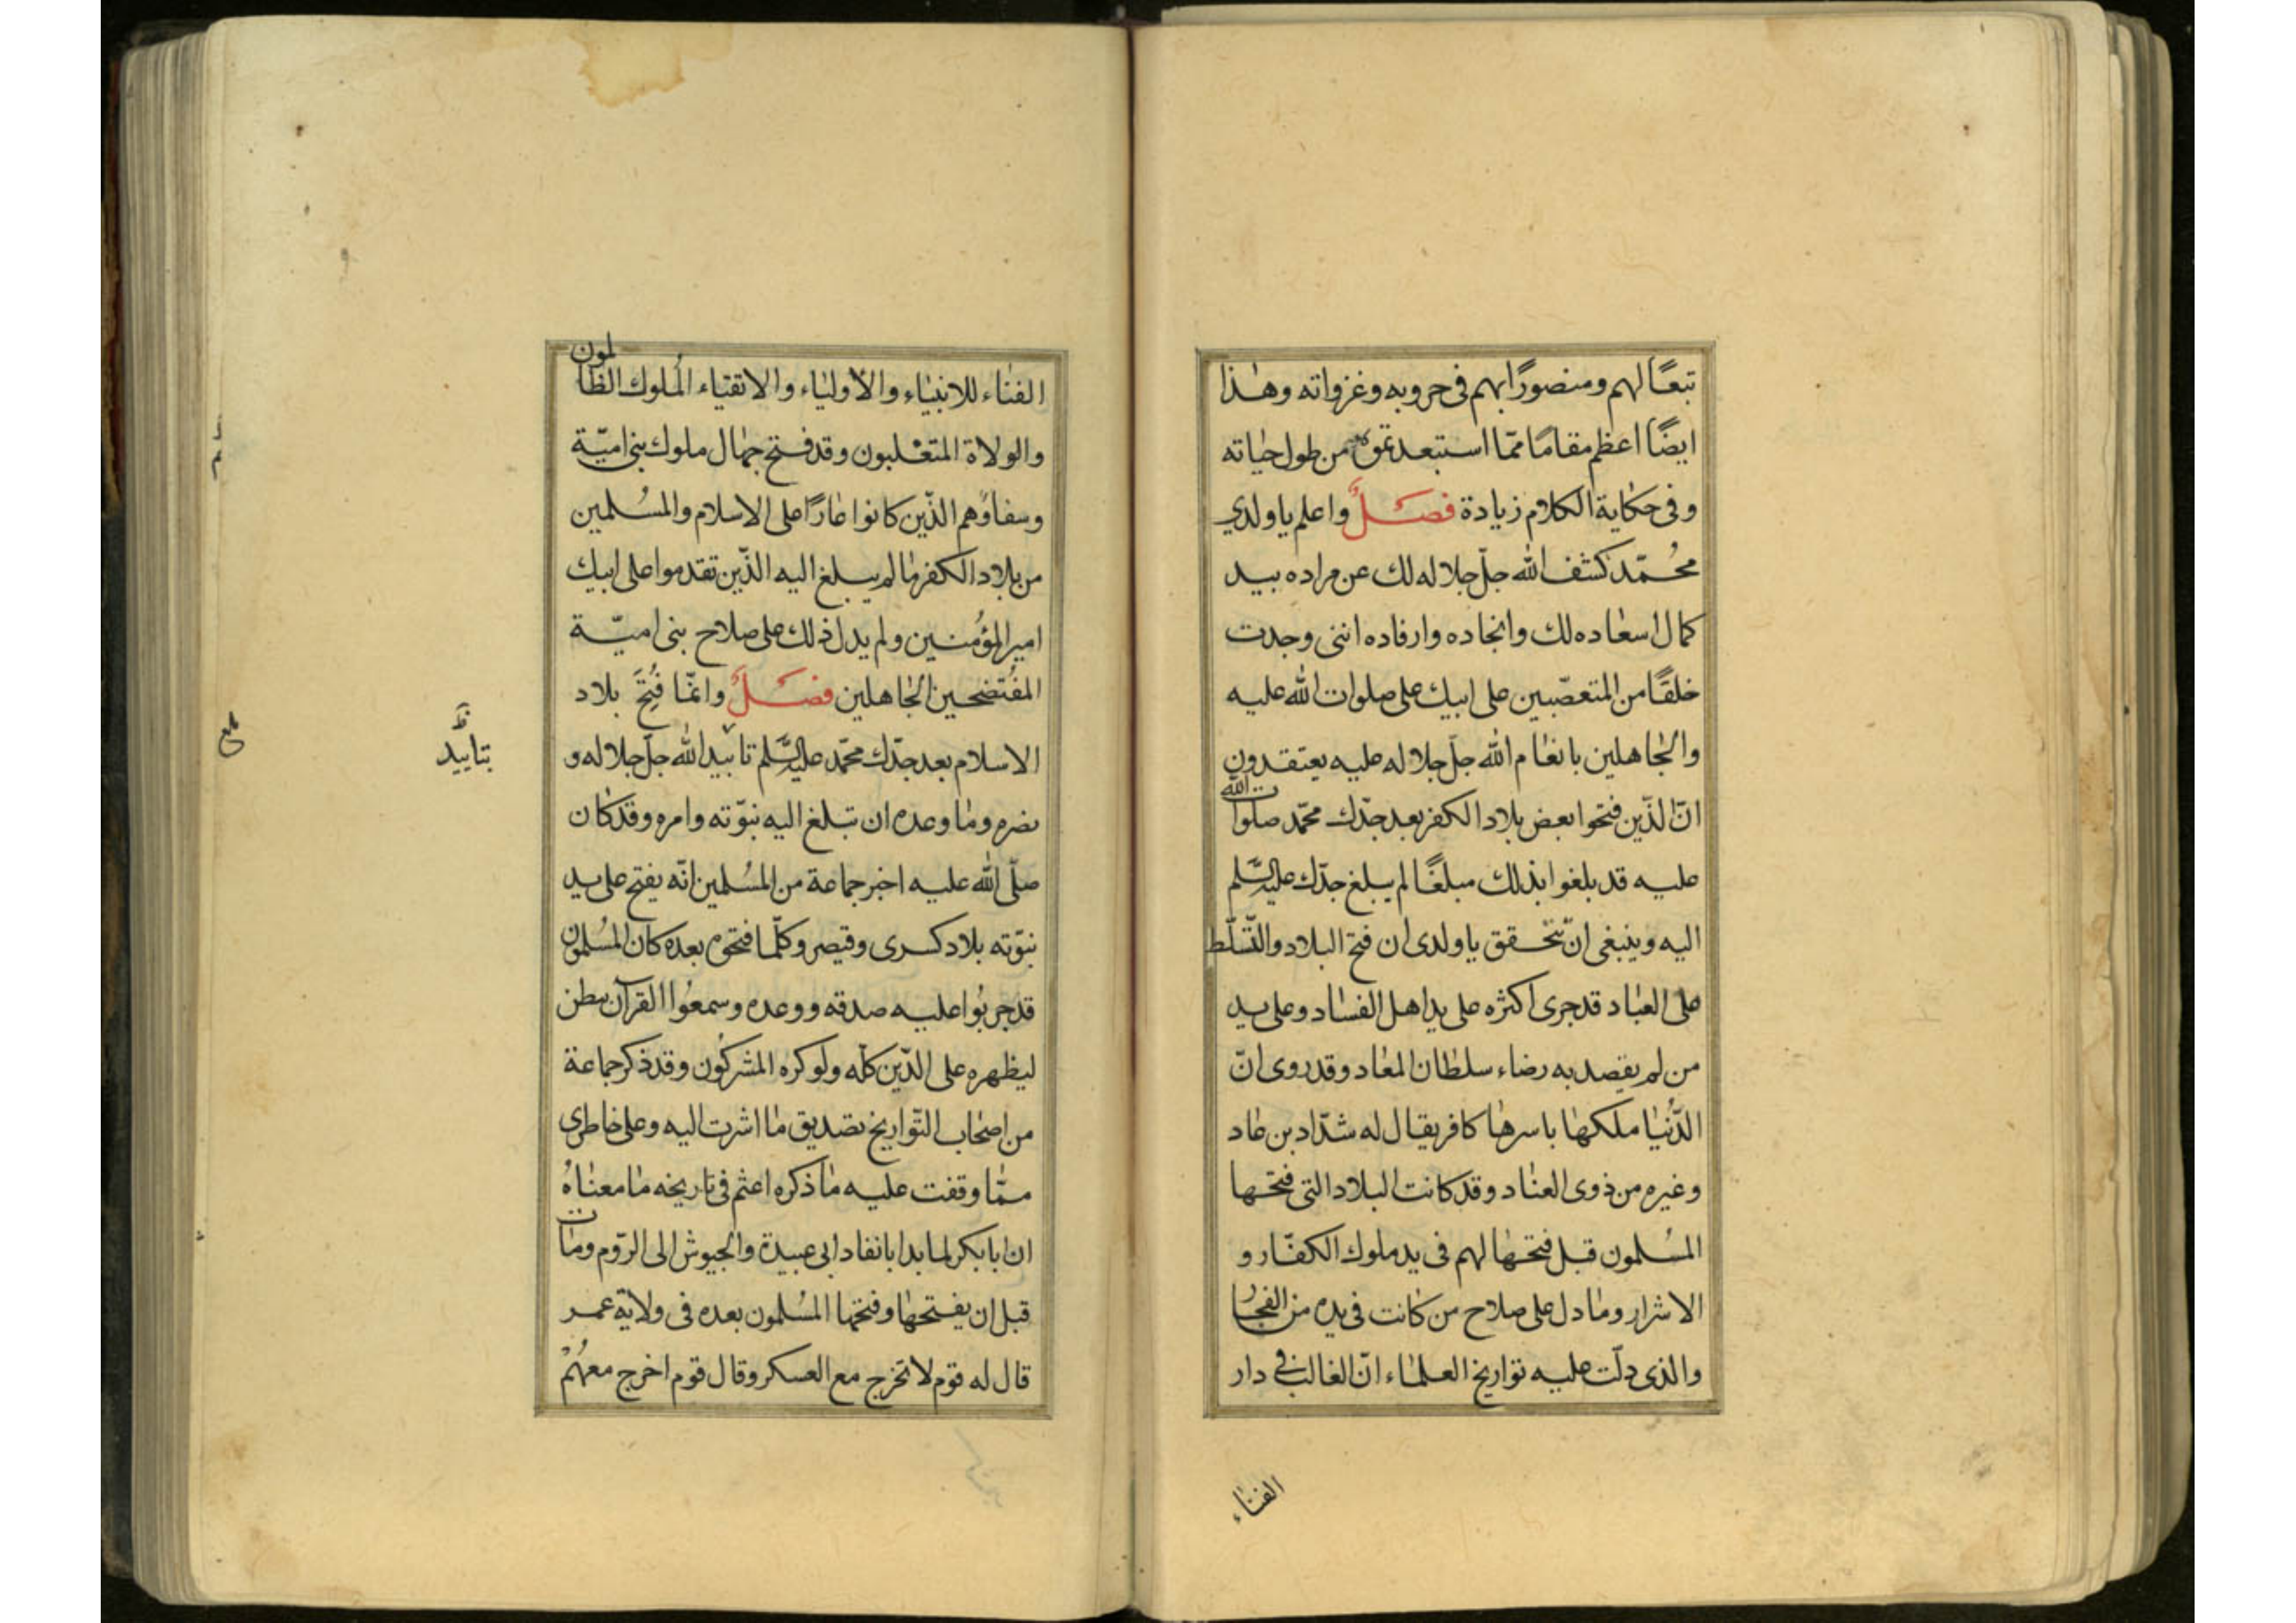 تبعًا لهم ومنصورًا بهم فى حروبه وغزواته وهذا
ايضًا اعظم مقامًا ممّا استبعد من طول حياته
وفى حكاية الكلام زيادة فصلٌ واعلم يا ولدي
محُمّد كشف الله جلّ جلاله لك عن مراده بيد
كمال اسعاده لك وانجاده وارفاده اننى وجدت
خلقًا من المتعصّبين على ابيك على صلوات الله عليه
والجاهلين بانعام الله جلّ جلاله عليه يعتقدون
انّ الذّين فتحوا بعض بلاد الكفر بعد جدّك محمّد صلوات الله
عليه قد بلغوا بذلك مبلغًا لم يبلغ جدّك عليه السّلم
اليه وينبغى ان تتحقق يا ولدى ان فتح البلاد والتّسلّط
على العباد قد جرى اكثره على يد اهل الفساد وعلى يد
من لم يقصد به رضاء سلطان المعاد وقد روى انّ
الدّنُيا ملكها باسرها كافر يقال له شدّاد بن عاد
وغيره من ذوى العناد وقد كانت البلاد التى فتحها
المسُلمون قبل فتحها لهم فى يد ملوك الكفّار و
الاشرار وما دل على صلاح من كانت فى يده من الفجار
والذى دلّت عليه تواريخ العلماء انّ الغالب فى دار
الفناء
الفناء للانبياء والأولياء والاتقياء المُلوك الظالمون
والولاة المتغلبون وقد فتح جهال ملوك بنى اميّة
وسفاؤهم الذّين كانوا عارًا على الاسلام والمسُلمين
من بلاد الكفر ما لم يبلغ اليه الذّين تقدموا على ابيك
امير المؤمُنين ولم يدل ذلك على صلاح بنى اميّة
المفُتضحين الجاهلين فصَلٌ وانمّا فُتِحَ بلاد
الاسلام بعد جدّك محمّد عليه السّلم تاييد الله جلّ جلاله و
بتاييد
نصره وما وعده ان تبلغ اليه نبوّته وامره وقد كان
صلّى الله عليه اخبر جماعة من المسُلمين انّه يفتح على يد
نبوّته بلاد كسرى وقيصر وكلّما فتحوه بعده كان المسُلمون
قد جربُوا عليه صدقه ووعده وسمعُوا القرآن
ليظهره على الدّين كلّه ولو كره المشركُون وقد ذكر جماعة
من اصحاب التّواريخ تصديق ما اشرت اليه وعلى خاطرى
ممّا وقفت عليه ما ذكره اعثم فى تاريخه ما معناهُ
ان ابا بكر لما بدا بانفاد ابى عبيدة والجيوش الى الرّوم ومات
قبل ان يفتحها وفتحها المسُلمون بعده فى ولاية عمر
قال له قوم لا تخرج مع العسكر وقال قوم اخرج معهُمْ